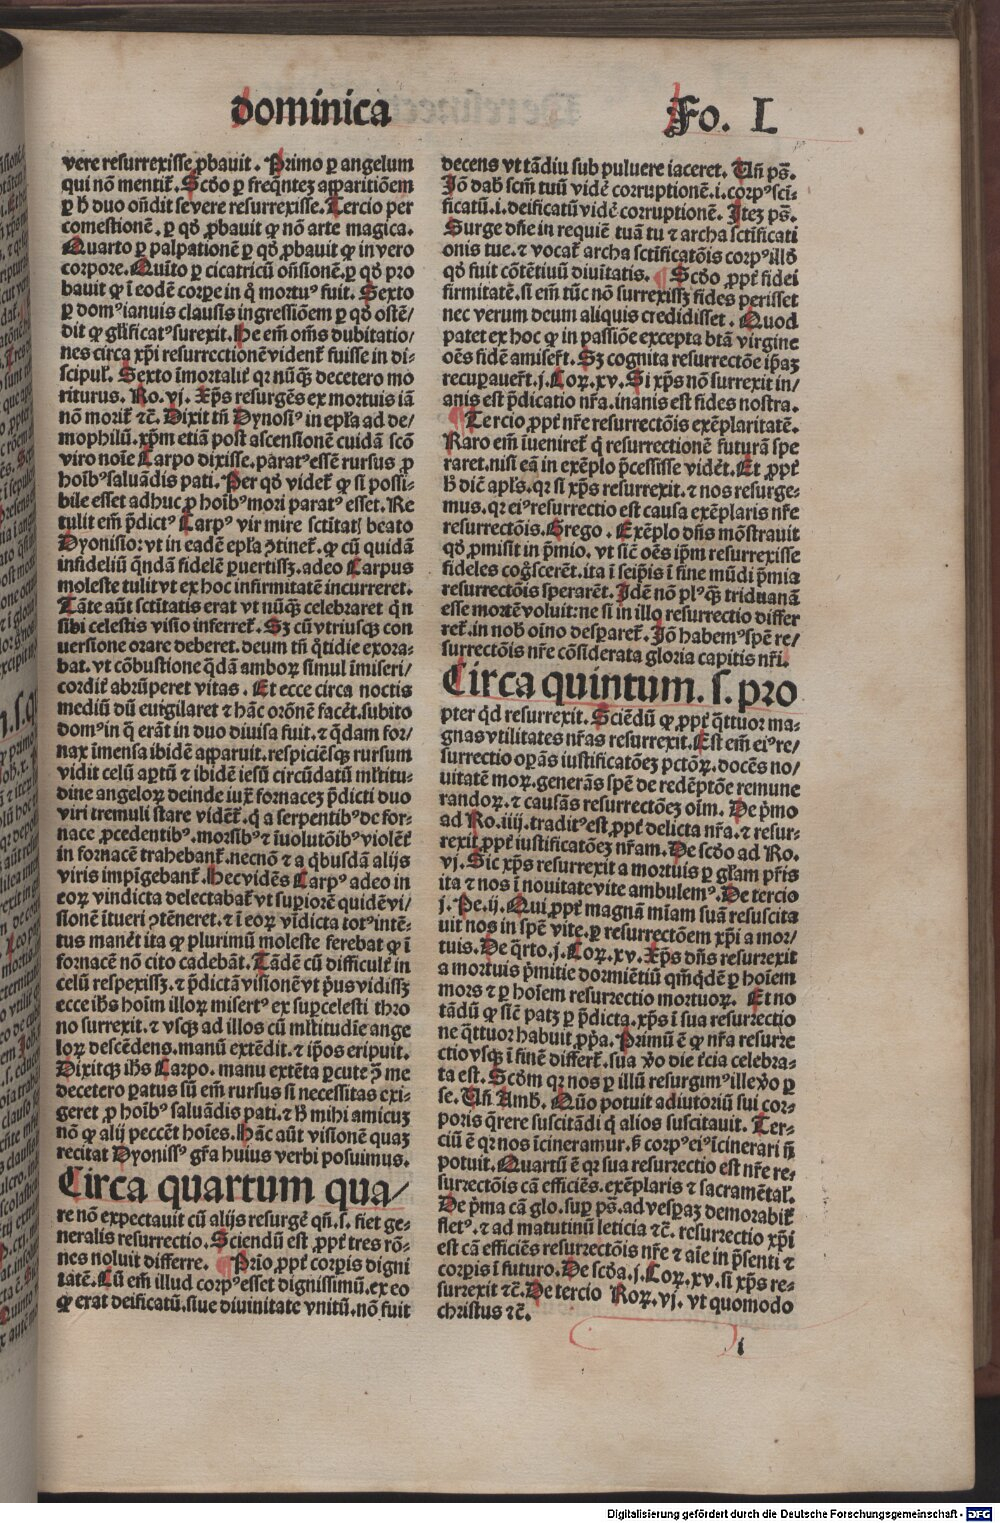 dominica
Fo. L
vere resurrexisse ꝓbauit. Primo ꝑ angelum
qui nō mentiť. Scḋo ꝑ freq̄ntez apparitiōem
ꝑ ħ duo oñdit se vere resurrexisse. Tercio per
comestionē. ꝑ qḋ ꝓbauit ꝙ nō arte magica.
Quarto ꝑ palpationē ꝑ qḋ ꝓbauit ꝙ in vero
corpore. Quīto ꝑ cicatricū oñsionē. ꝑ qḋ pro
bauit ꝙ ī eodē corꝑe in q̇ mortuꝰ fuit. Sexto
ꝑ domꝰ ianuis clausis ingressiōem ꝑ qḋ ostē/
dit ꝙ gľificatꝰ surexit. He em̄ om̄s dubitatio/
nes circa xp̄i resurrectionē videnť fuisse in di-
scipuľ. Sexto īmortaliť qꝛ nūꝙ̄ decetero mo
riturus. Ro. vj. Xp̄s resurgēs ex mortuis iā
nō moriť ⁊c̄. Dixit tñ Dynosiꝰ in epľa ad de/
mophilū. xp̄m etiā post ascensionē cuidā scō
viro noīe Carpo dixisse. paratꝰ essē rursus ꝓ
hoībꝰ saluādis pati. Per qḋ videť ꝙ si possi-
bile esset adhuc ꝓ hoībꝰ mori paratꝰ esset. Re
tulit em̄ p̄dictꝰ Carpꝰ vir mire sctītatꝭ beato
Dyonisio: vt in eadē epľa ꝯtineť. ꝙ cū quidā
infideliū q̄ndā fidelē ꝑuertissꝫ. adeo Carpus
moleste tulit vt ex hoc infirmitatē incurreret.
Tāte aūt sctītatis erat vt nūꝙ̄ celebraret q̇n
sibi celestis visio inferreť. Sꝫ cū vtriusꝙ̄ con
uersione orare deberet. deum tñ q̄tidie exora-
bat. vt cōbustione q̄dā amboꝝ simul īmiseri/
cordiť abrūperet vitas. Et ecce circa noctis
mediū dū euigilaret ⁊ hāc orōnē facēt. subito
domꝰ in q̄ erāt in duo diuisa fuit. ⁊ q̄dam for/
nax īmensa ibidē apparuit. respiciēsꝙ̄ rursum
vidit celū aꝑtū ⁊ ibidē iesū circūdatū mľtitu-
dine angeloꝝ deinde iux̄ fornacez p̄dicti duo
viri tremuli stare vidēť. q̇ a serpentibꝰ de for-
nace ꝓcedentibꝰ. morsibꝰ ⁊ īuolutōibꝰ violēť
in fornacē trahebanť. necnō ⁊ a q̇busdā alijs
viris impīgebanť. Hec vidēs Carpꝰ adeo in
eoꝝ vindicta delectabať vt suꝑiorē quidē vi/
sionē ītueri ꝯtēneret. ⁊ ī eoꝝ vīdicta totꝰ intē-
tus manēt ita ꝙ plurimū moleste ferebat ꝙ ī
fornacē nō cito cadebāt. Tādē cū difficulť in
celū respexissꝫ. ⁊ p̄dictā visionē vt p̄us vidissꝫ
ecce ihs̄ hoīm illoꝝ misertꝰ ex suꝑcelesti thro
no surrexit. ⁊ vsꝙ̄ ad illos cū mľtitudīe ange
loꝝ descēdens. manū extēdit. ⁊ ip̄os eripuit.
Dixitꝙ̄ ihs̄ Carpo. manu extēta ꝑcute ꝯ̄ me
decetero ꝑatus sū em̄ rursus si necessitas exi-
geret ꝓ hoībꝰ saluādis pati. ⁊ ħ mihi amicuz
nō ꝙ alij peccēt hoīes. Hāc aūt visionē quaz
recitat Dyonissꝰ gr̄a huius verbi posuimus.
Circa quartum qua/
re nō expectauit cū alijs resurgē qñ. s. fiet ge-
neralis resurrectio. Sciendū est ꝓpť tres rō-
nes noluit differre. ¶ Prīo ꝓpť corꝑis digni
tatē. Cū em̄ illud corpꝰ esset dignissimū. ex eo
ꝙ erat deificatū. siue diuinitate vnitū. nō fuit
decens vt tādiu sub puluere iaceret. Vñ ps̄.
Jō dab̄ scm̄ tuū vidē corruptionē. i. corpꝰ sci-
ficatū. i. deificatū vidē corruptionē. Itez ps̄.
Surge dñe in requiē tuā tu ⁊ archa sctīficati
onis tue. ⁊ vocať archa sctīficatōis corpꝰ illḋ
qḋ fuit cōtētiuū diuītatis. ¶ Scḋo ꝓpť fidei
firmitatē. si em̄ tūc nō surrexissꝫ fides perisset
nec verum deum aliquis credidisset. Quod
patet ex hoc ꝙ in passiōe excepta btā virgine
oēs fidē amiseřt. Sꝫ cognita resurrectōe ip̄az
recuꝑaueřt. j. Coꝝ. xv. Si xp̄s nō surrexit in/
anis est p̄dicatio nr̄a. inanis est fides nostra.
¶ Tercio ꝓpť nr̄e resurrectōis exēplaritatē.
Raro em̄ īuenireť q̇ resurrectionē futurā spe
raret. nisi eā in exēplo p̄cessisse vidēt. Et ꝓpť
ħ dicē apľs. qꝛ si xp̄s resurrexit. ⁊ nos resurge-
mus. qꝛ eiꝰ resurrectio est causa exēplaris nr̄e
resurrectōis. Grego. Exēplo dñs mōstrauit
qḋ ꝓmisit in p̄mio. vt sicē oēs ip̄m resurrexisse
fideles cog̊scerēt. ita ī seip̄is ī fine mūdi p̄mia
resurrectōis sperarēt. Idē nō plꝰꝙ̄ triduanā
esse mortē voluit: ne si in illo resurrectio differ
reť. in nob̄ oīno desꝑareť. Jō habemꝰ spē re/
surrectōis nr̄e cōsiderata gloria capitis nr̄i.
Circa quintum. s. pro
pter qḋ resurrexit. Sciēdū ꝙ ꝓpť q̄ttuor ma-
gnas vtilitates nr̄as resurrexit. Est em̄ eiꝰ re/
surrectio oꝑās iustificatōez pctōꝝ. docēs no/
uitatē moꝝ. generās spē de redēptōe remune
randoꝝ. ⁊ causās resurrectōez oīm. De p̄mo
ad Ro. iiij. traditꝰ est ꝓpť delicta nr̄a. ⁊ resur-
rexit ꝓpť iustificatōez nr̄am. De scḋo ad Ro.
vj. Sic xp̄s resurrexit a mortuis ꝑ gľam pr̄is
ita ⁊ nos ī nouitate vite ambulemꝰ. De tercio
j. Pe. ij. Qui ꝓpť magnā mīam suā resuscita
uit nos in spē vite. ꝑ resurrectōem xp̄i a mor/
tuis. De q̄rto. j. Coꝝ. xv. Xp̄s dñs resurrexit
a mortuis p̄mitie dormiētiū qm̄qdē ꝑ hoīem
mors ⁊ ꝑ hoīem resurrectio mortuoꝝ. Et no
tādū ꝙ sicē patꝫ ꝑ p̄dicta. xp̄s ī sua resurrectio
ne q̄ttuor habuit ꝓp̄a. Primū ē ꝙ nr̄a resurre
ctio vsꝙ̄ ī finē differť. sua ṽo die t̄cia celebra-
ta est. Scḋm qꝛ nos ꝑ illū resurgimꝰ ille ṽo ꝑ
se. Vñ Amb̄. Quō potuit adiutoriū sui cor-
poris q̄rere suscitādi q̇ alios suscitauit. Ter-
ciū ē qꝛ nos īcineramur. ꝫ corpꝰ eiꝰ īcinerari nō
potuit. Quartū ē qꝛ sua resurrectio est nr̄e re-
surrectōis cā efficiēs. exēplaris ⁊ sacramētaľ.
De p̄ma cā glo. suꝑ ps̄. ad vesꝑaz demorabiť
fletꝰ. ⁊ ad matutinū leticia ⁊c̄. resurrectio xp̄i
est cā efficiēs resurrectōis nr̄e ⁊ aīe in p̄senti ⁊
corꝑis ī futuro. De scḋa. j. Coꝝ. xv. si xp̄s re-
surrexit ⁊c̄. De tercio Roꝝ. vj. vt quomodo
christus ⁊c̄.
i
Digitalisierung gefördert durch die Deutsche Forschungsgemeinschaft - DFG